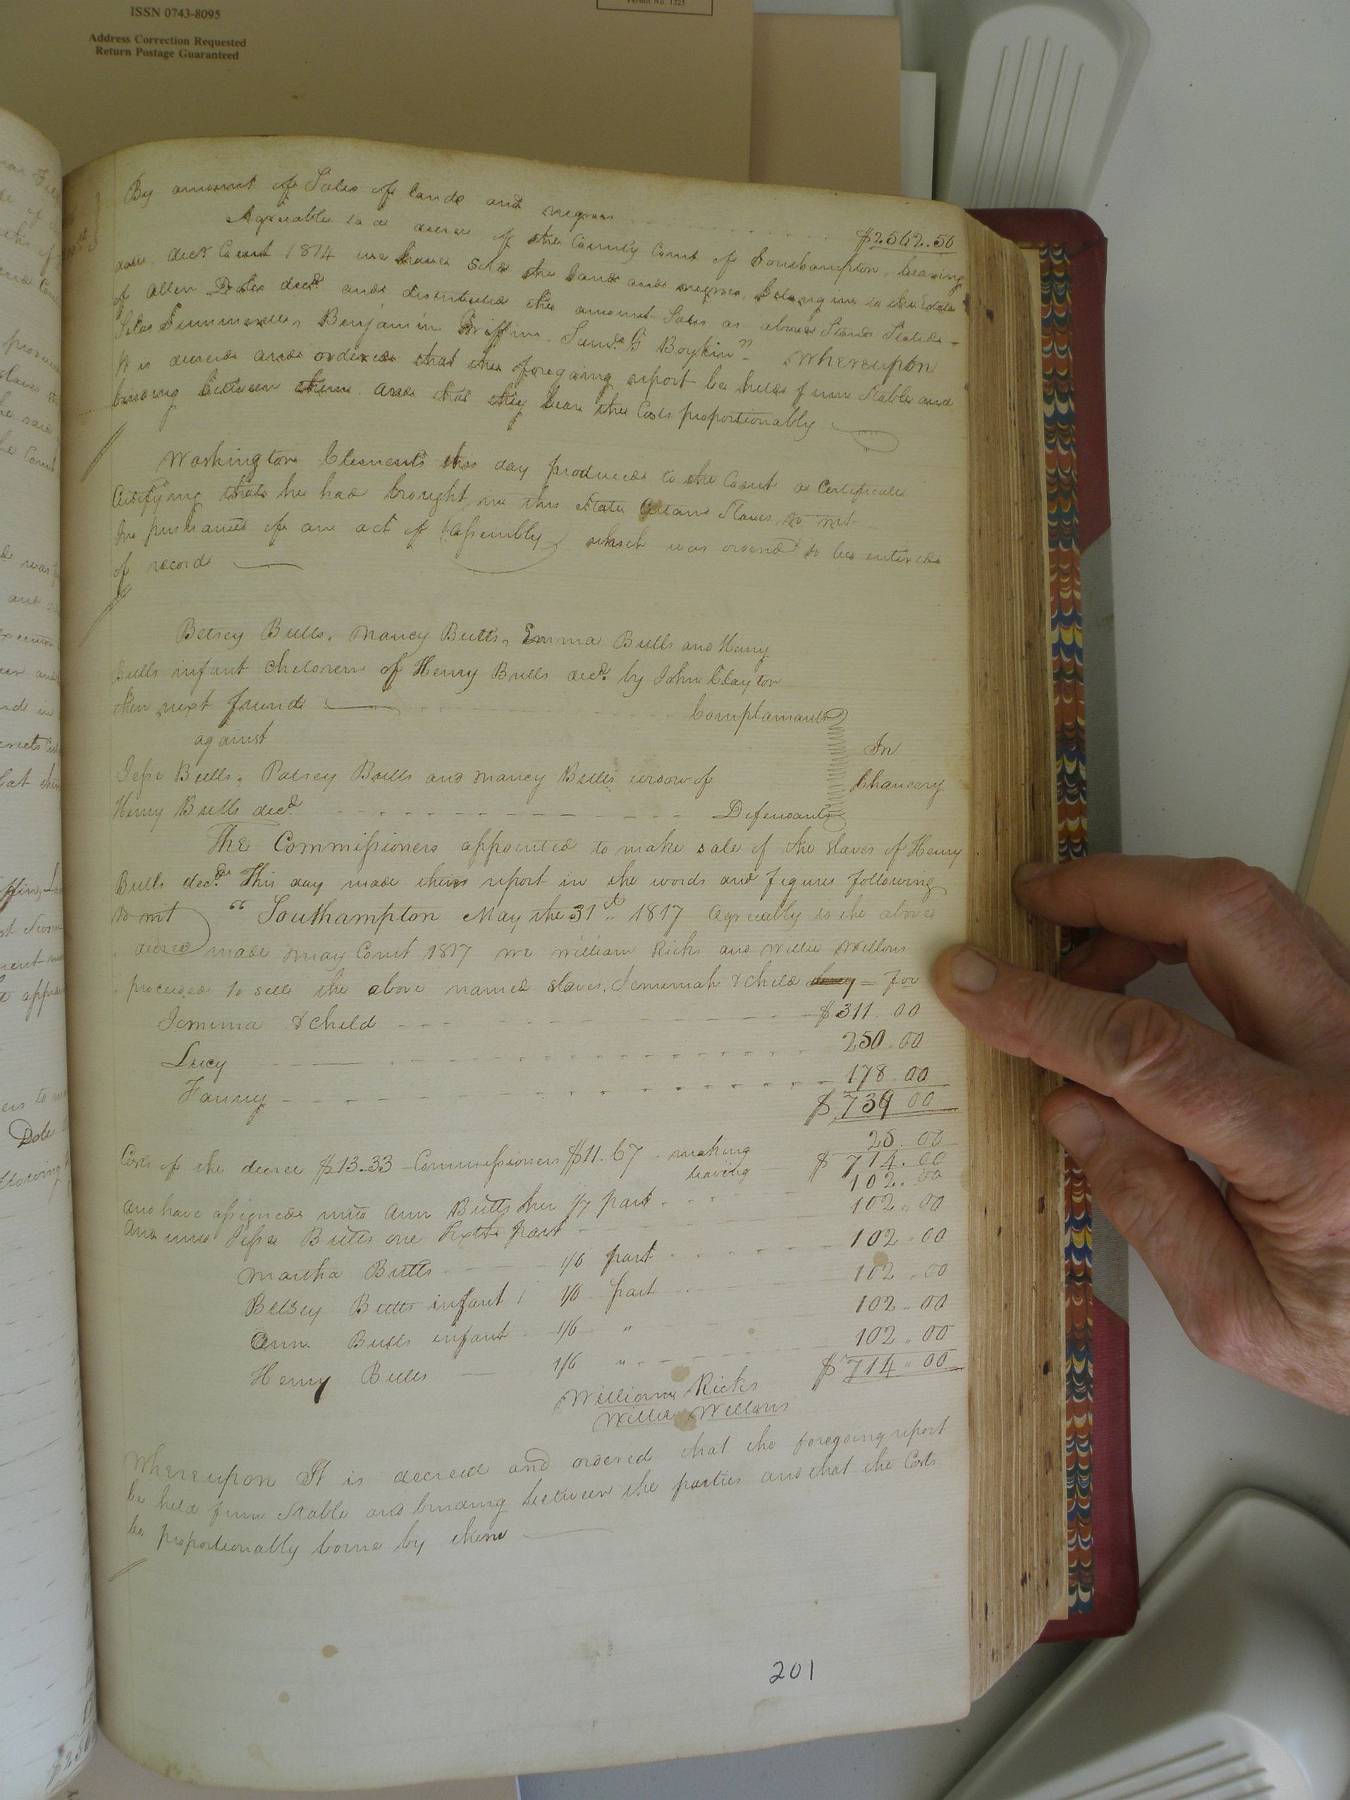 ISSN 0743-8095
Address Correction Requested
Return Postage Guaranteed
Permit No. 1225
By amount of Sales of lands and negroes $2562.56
Agreeable to a decree of the County Court of Southampton, bearing
date decr Court 1814 we have sold the land and negroes belonging to the Estate
of Allen Doles decd. and distributed the amount Sales as above Stands Stated -
Silas Summerell, Benjamin Griffin, Saml. G Boykin" Whereupon
It is decreed and ordered that the foregoing report be held firm Stable and
binding between them and that they bear the Costs proportionably
Washington Clements this day produced to the Court a Certificate
Certifying that he has brought in this State Certain Slaves, to wit
In pursuance of an act of Assembly which was ordered to be entered
of record
Betsey Butts, Nancy Butts, Emma Butts and Henry
Butts infant children of Henry Butts decd. by John Clayton
their next friend Complainants
against
In
Jesse Butts, Patsey Butts and Nancy Butts widow of
Chancery
Henry Butts decd. Defendants
The Commissioners appointed to make sale of the slaves of Henry
Butts decd. This day made their report in the words and figures following
to wit "Southampton May the 31st 1817 Agreeably to the above
decree made May Court 1817 we William Ricks and Willie Willons
proceeded to sell the above named slaves, Jemimah & child for
Jemima & child $311.00
Lucy 250.00
Fanny 178.00
$739.00
25.00
Costs of the decree $13.33 Commissioners $11.67 making
leaving $714.00
102.00
and have assigned unto Ann Butts her 1/7 part 102.00
And unto Jesse Butts one Sixth part
Martha Butts 1/6 part 102.00
Betsey Butts infant 1/6 part 102.00
Ann Butts infant 1/6 " 102.00
Henry Butts 1/6 " 102.00
$714.00
William Ricks
Willie Willons
Whereupon It is decreed and ordered that the foregoing report
be held firm Stable and binding between the parties and that the Costs
be proportionably borne by them
201